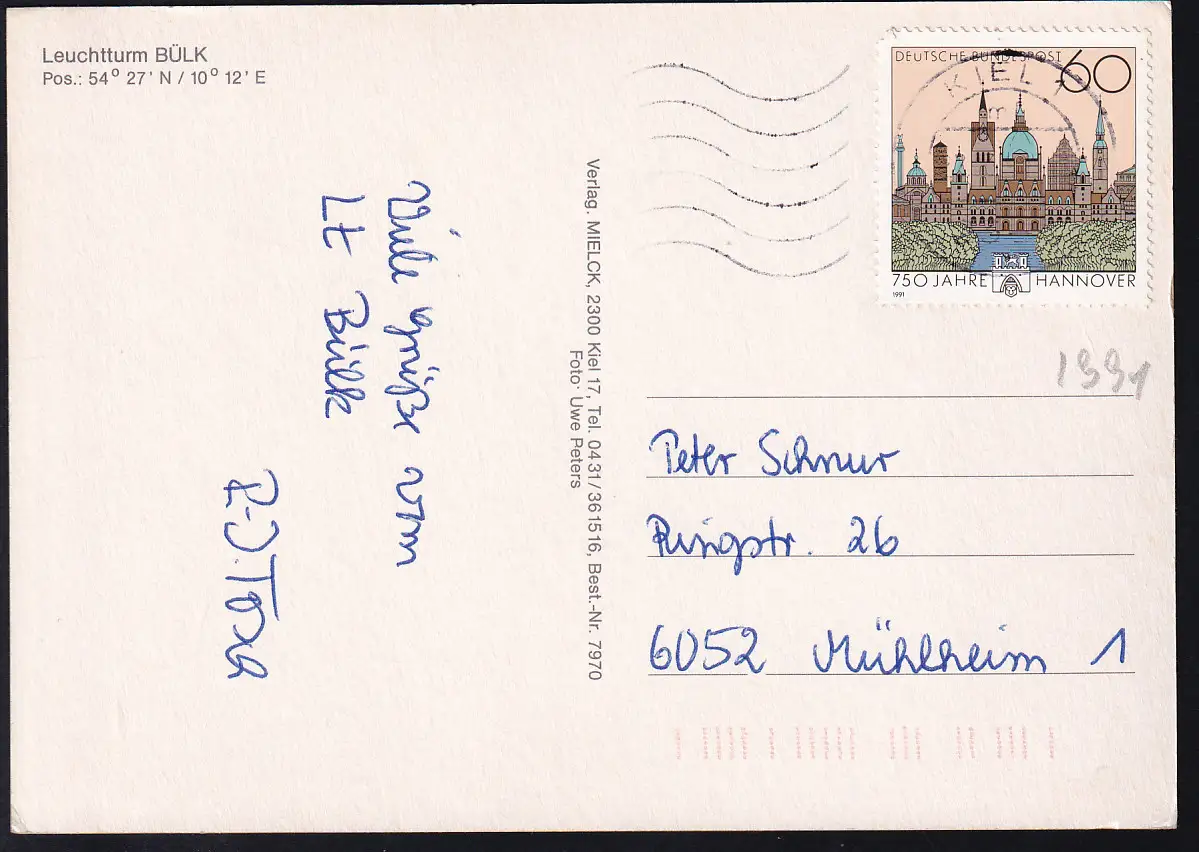 Leuchtturm BÜLK
Pos.: 54° 27' N / 10° 12' E
DEUTSCHE BUNDESPOST
60
KIEL 1
750 JAHRE HANNOVER
1991
1991
Viele Grüße vom
Lt Bülk
Verlag. MIELCK, 2300 Kiel 17, Tel. 0431/361516, Best.-Nr. 7970
Foto: Uwe Peters
Peter Schnur
Ringstr. 26
6052 Mühlheim 1